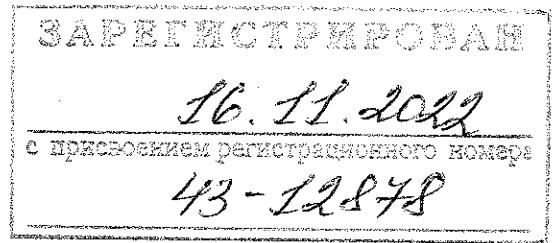 ЗАРЕГИСТРИРОВАН
16.11.2022
с присвоением регистрационного номера
43-12878